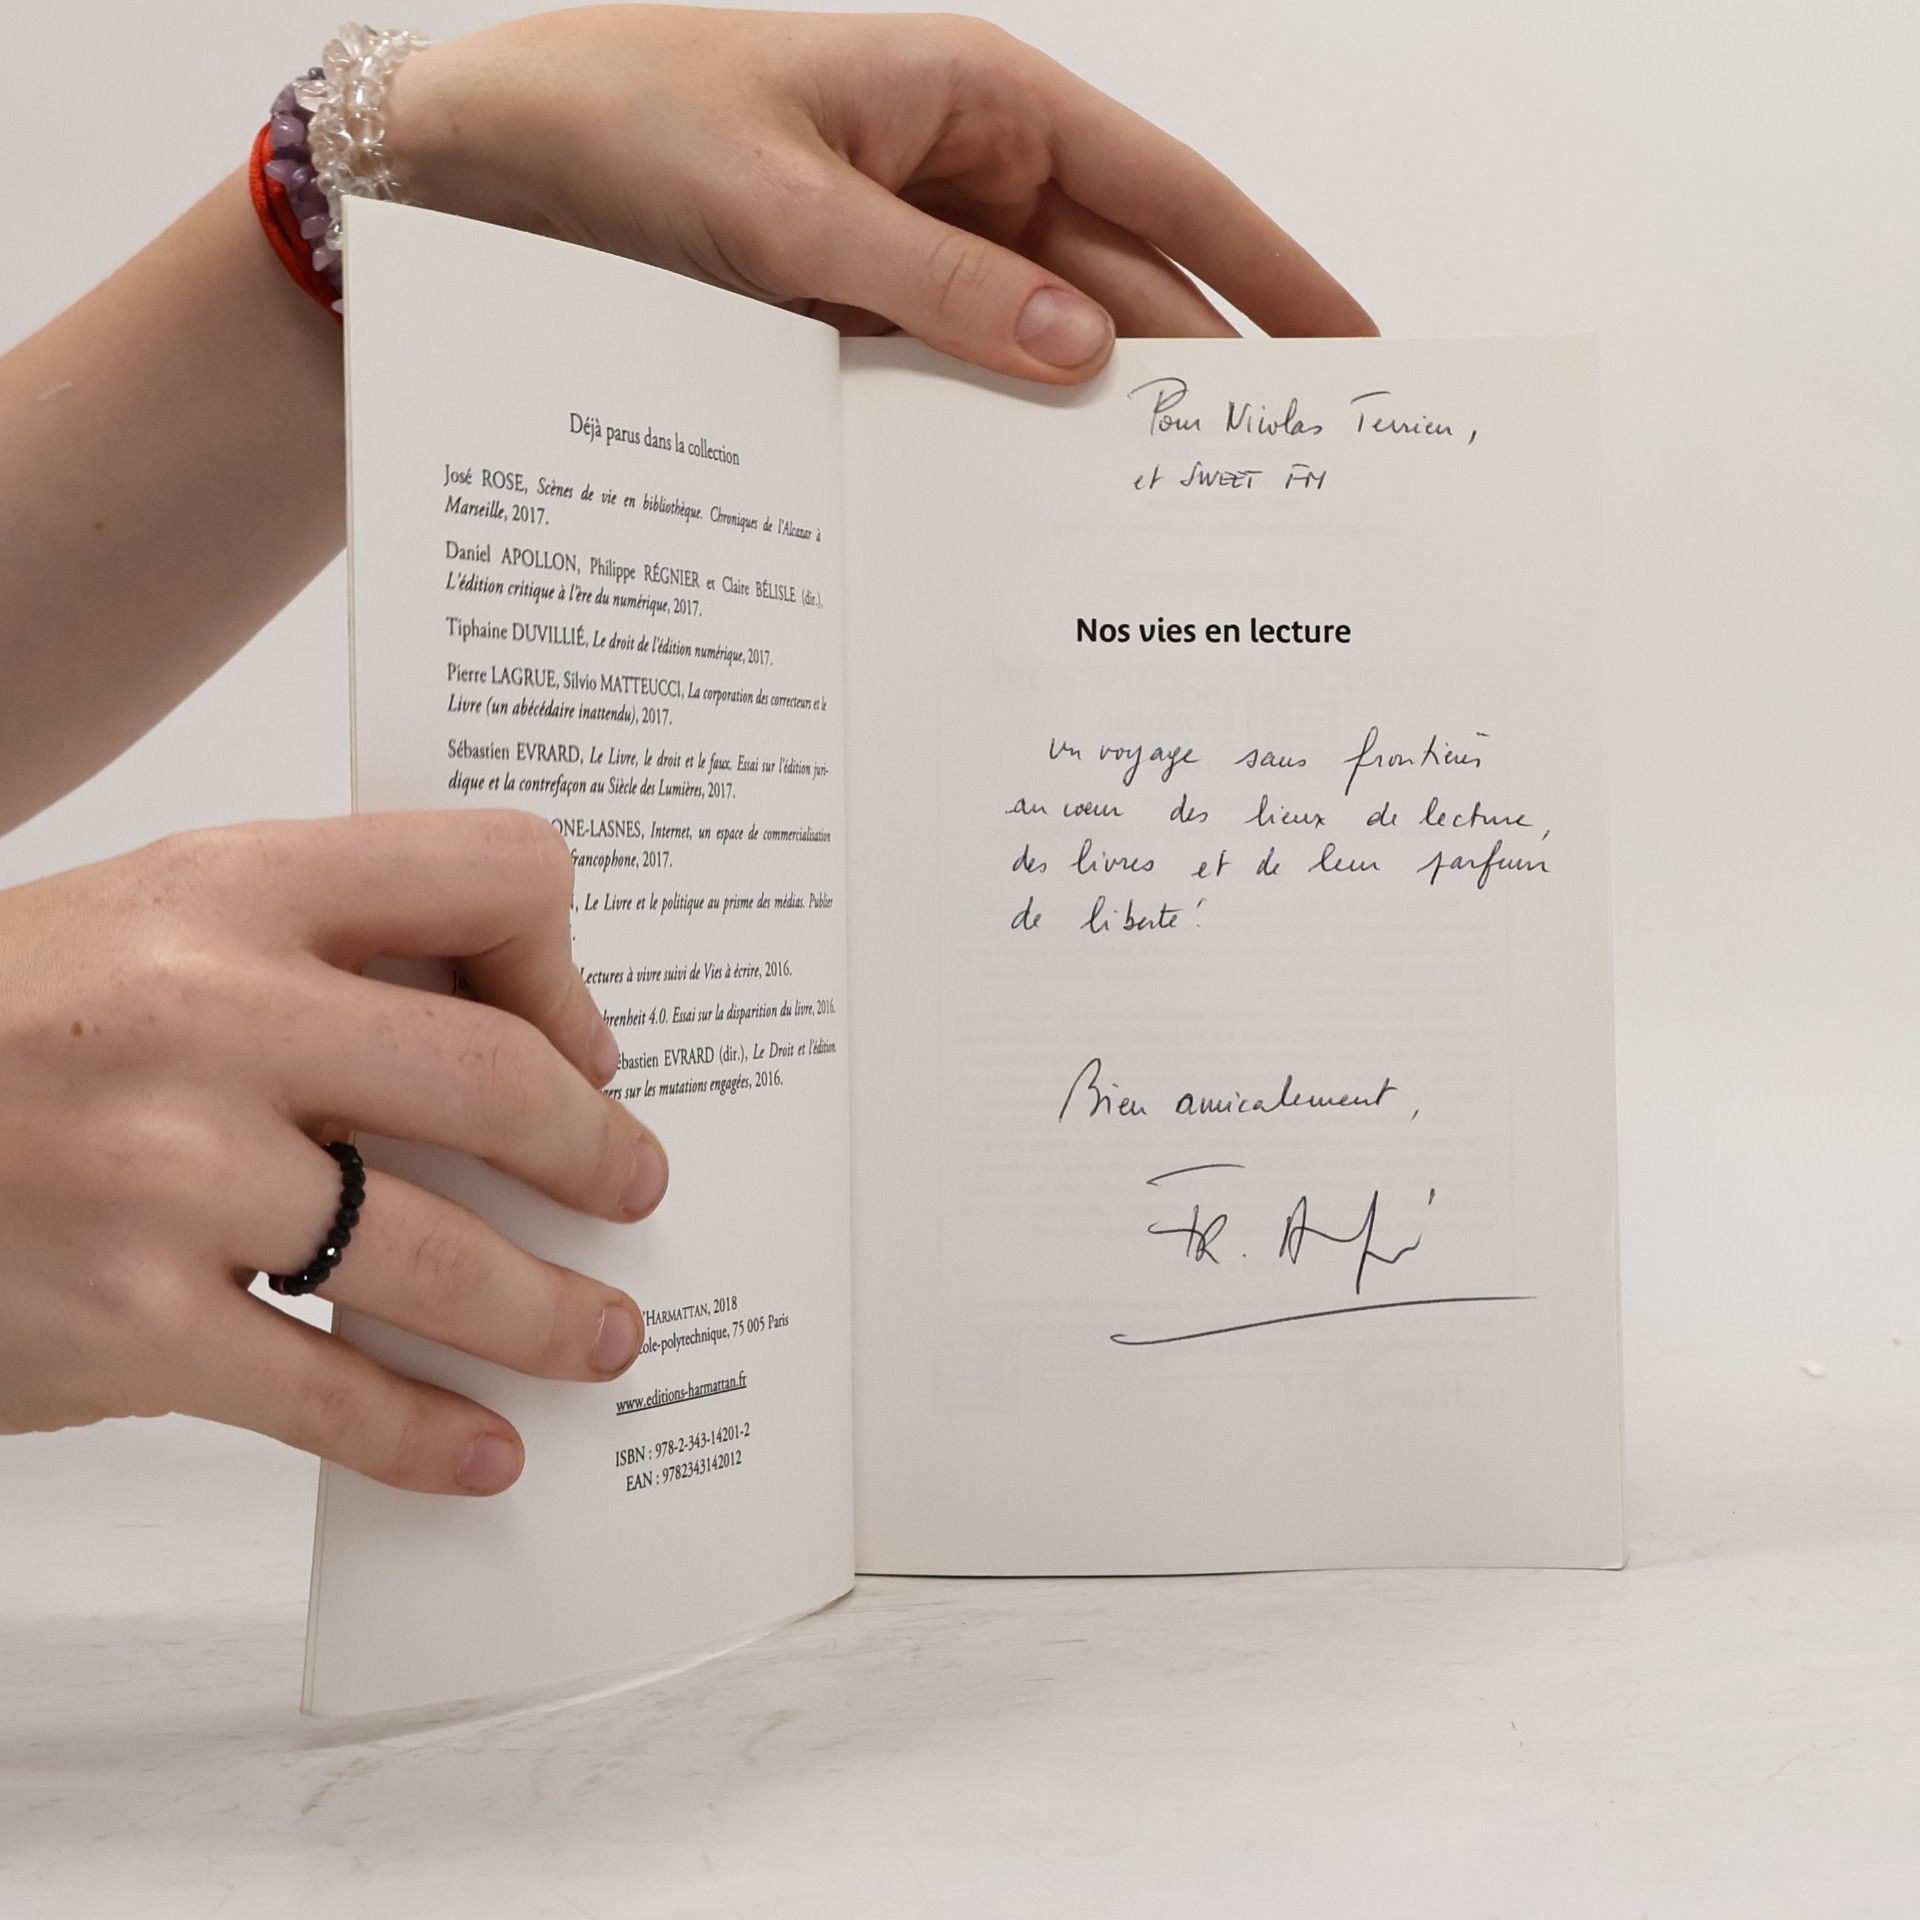 Déjà parus dans la collection
José ROSE, Scènes de vie en bibliothèque. Chroniques de l'Alcazar à
Marseille, 2017.
Daniel APOLLON, Philippe RÉGNIER et Claire BÉLISLE (dir.),
L'édition critique à l'ère du numérique, 2017.
Tiphaine DUVILLIÉ, Le droit de l'édition numérique, 2017.
Pierre LAGRUE, Silvio MATTEUCCI, La corporation des correcteurs et le
Livre (un abécédaire inattendu), 2017.
Sébastien EVRARD, Le Livre, le droit et le faux. Essai sur l'édition juri-
dique et la contrefaçon au Siècle des Lumières, 2017.
ONE-LASNES, Internet, un espace de commercialisation
francophone, 2017.
, Le Livre et le politique au prisme des médias. Publier
Lectures à vivre suivi de Vies à écrire, 2016.
hrenheit 4.0. Essai sur la disparition du livre, 2016.
ébastien EVRARD (dir.), Le Droit et l'édition.
gers sur les mutations engagées, 2016.
'HARMATTAN, 2018
cole-polytechnique, 75 005 Paris
www.editions-harmattan.fr
ISBN : 978-2-343-14201-2
EAN : 9782343142012
Pour Nicolas Terrien,
et SWEET FM
Nos vies en lecture
Un voyage sans frontières
au cœur des lieux de lecture,
des livres et de leur parfum
de liberté !
Bien amicalement,